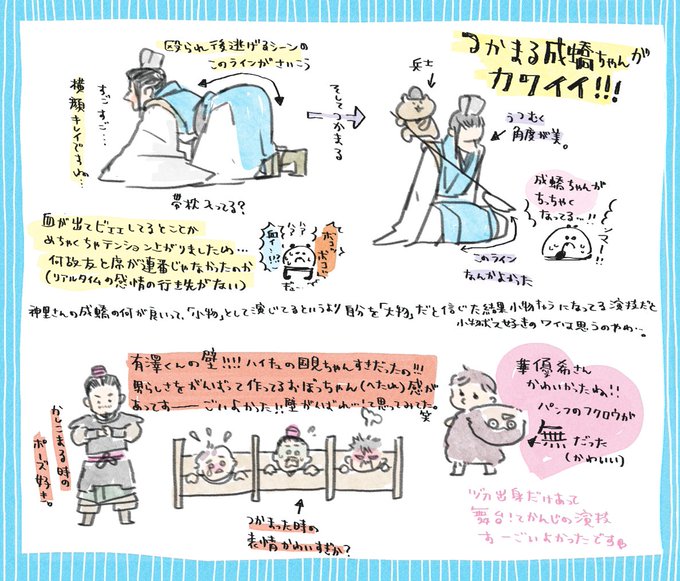 殴られ後逃げるシーンの
このラインがさいこう
すごすご…
横顔キレイですね…
帯枕入ってる?
そしてつかまる
つかまる成蟜ちゃんが
カワイイ!!!
兵士
うつむく
角度が美。
成蟜ちゃんが
ちっちゃく
なってる…!!
このライン
なんかよかった
血が出てビェェしてるとことか
めちゃくちゃテンション上がりましたね…
何故友と席が連番じゃなかったのか
(リアルタイムの感情の行き先がない)
ボコッ
ボコ
神里さんの成蟜の何が良いって、「小物」として演じてるというより自分を「大物」だと信じた結果小物ちゃうになってる演技だと
小物ボス好きのワイは思うのやわ…。
有澤くんの壁!!!!ハイキュの国見ちゃんすきだったの!!!
男らしさをがんばって作ってるおぼっちゃん(へたれ)感が
あってすーーーごいよかった!!壁がんばれ…!って思っておれた。
笑
かしこまる時の
ポーズ好き。
つかまった時の
表情かわいすぎか?
華優希さん
かわいかったね!!
パンフのフクロウが
無だった
(かわいい)
ヅカ出身だけあって
舞台!てかんじの演技
すーごいよかったです